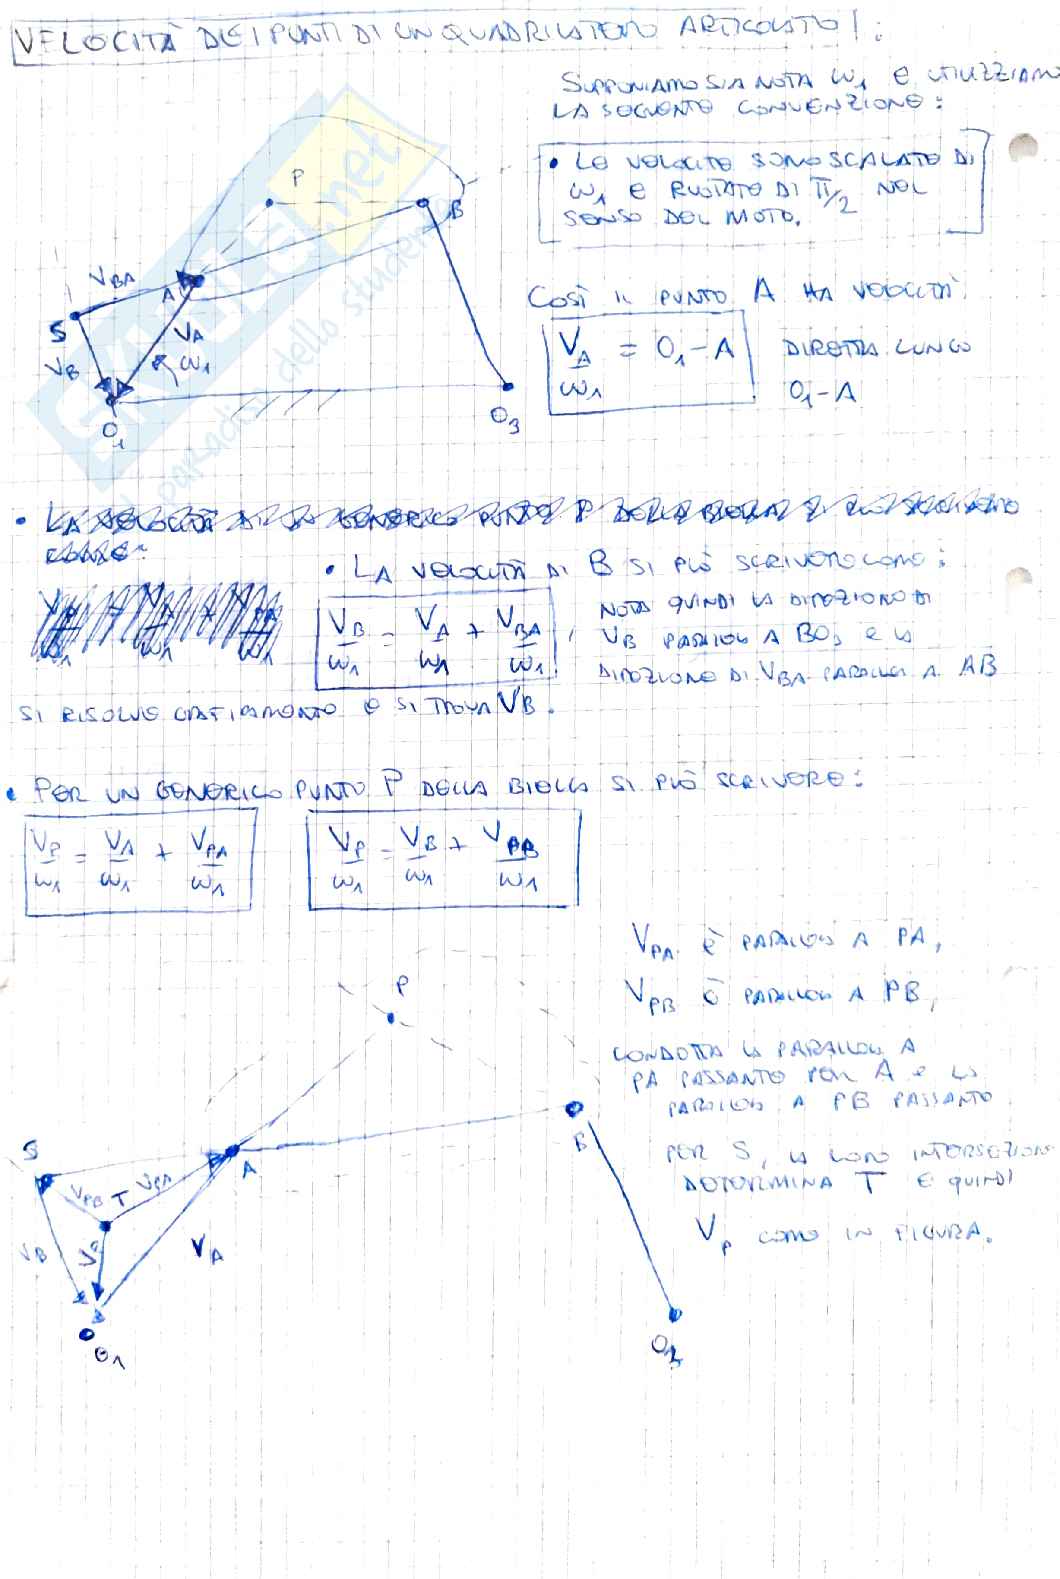 VELOCITÀ DEI PUNTI DI UN QUADRILATERO ARTICOLATO:
SUPPONIAMO SIA NOTA ω1 E UTILIZZIAMO
LA SEGUENTE CONVENZIONE:
• LE VELOCITÀ SONO SCALATE DI
ω1 E RUOTATE DI π/2 NEL
SENSO DEL MOTO.
P
B
VBA
A
S
VA
VB
ω1
O1
O3
COSÌ IL PUNTO A HA VELOCITÀ
VA/ω1 = O1-A
DIRETTA LUNGO
O1-A
• LA VELOCITÀ DI UN GENERICO PUNTO P DELLA BIELLA SI PUÒ
COME:
• LA VELOCITÀ DI B SI PUÒ SCRIVERE COME:
VB/ω1 = VA/ω1 + VBA/ω1,
NOTA QUINDI LA DIREZIONE DI
VB PARALLELA A BO3 E LA
DIREZIONE DI VBA PARALLELA A AB
SI RISOLVE GRAFICAMENTE E SI TROVA VB.
• PER UN GENERICO PUNTO P DELLA BIELLA SI PUÒ SCRIVERE:
VP/ω1 = VA/ω1 + VPA/ω1
VP/ω1 = VB/ω1 + VPB/ω1
VPA È PARALLELA A PA,
VPB È PARALLELA A PB,
CONDOTTA LA PARALLELA A
PA PASSANTE PER A E LA
PARALLELA A PB PASSANTE
PER S, LA LORO INTERSEZIONE
DETERMINA T E QUINDI
VP COME IN FIGURA.
P
B
S
A
VPB
T
VPA
VB
VP
VA
O1
SKUOLA.net
il paradiso dello studente